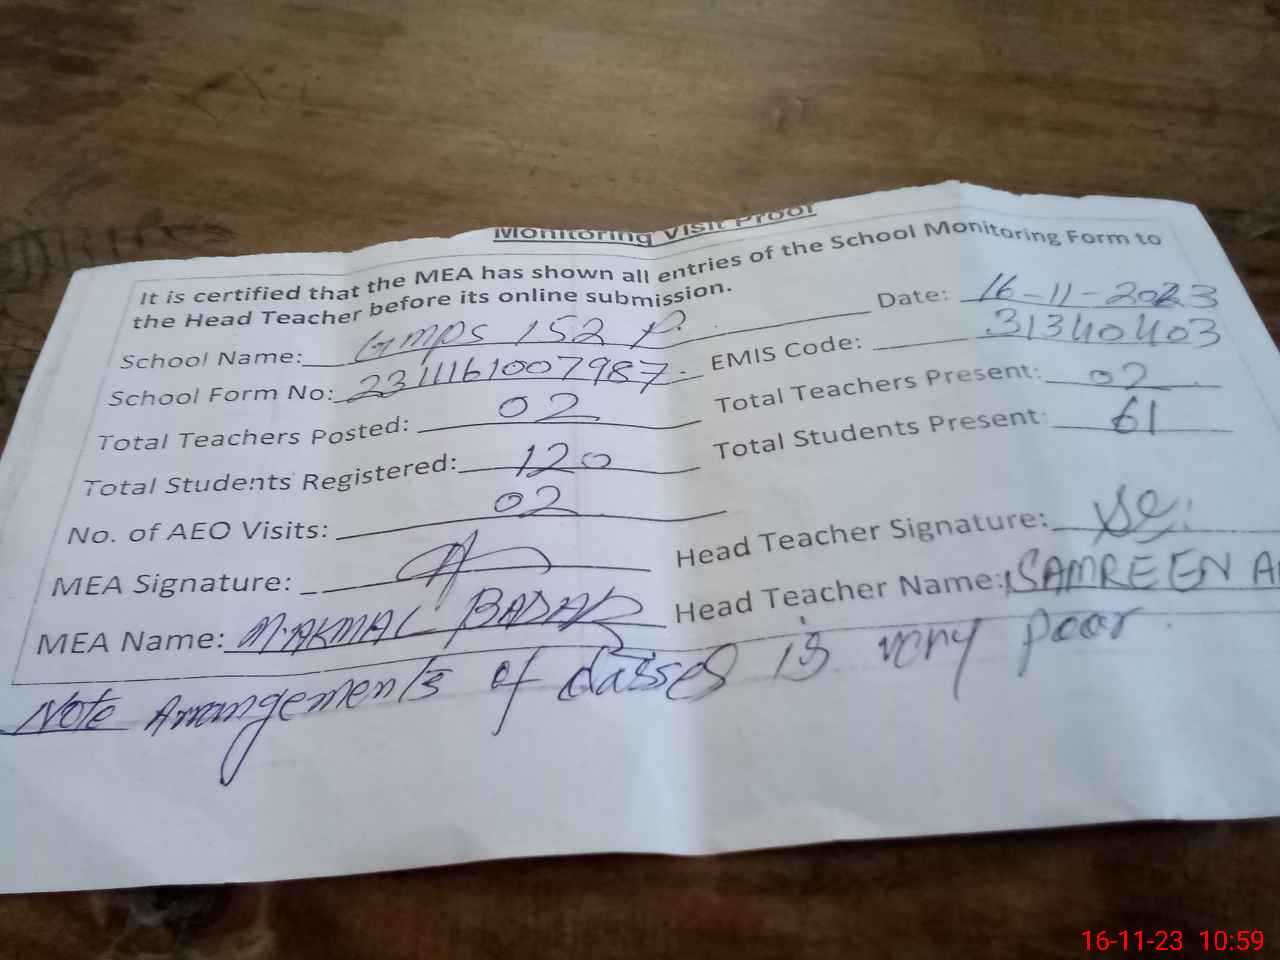 Monitoring Visit Proof
It is certified that the MEA has shown all entries of the School Monitoring Form to
the Head Teacher before its online submission.
Date: 16-11-2023
School Name: Gmps 152 P.
EMIS Code: 31340403
School Form No: 2311161007987.
Total Teachers Present: 02
Total Teachers Posted: 02
Total Students Present: 61
Total Students Registered: 120
No. of AEO Visits: 02
Head Teacher Signature:
MEA Signature:
Head Teacher Name: SAMREEN
MEA Name: M.AKMAL BADAR
Note Arrangements of classes is very poor.
16-11-23 10:59